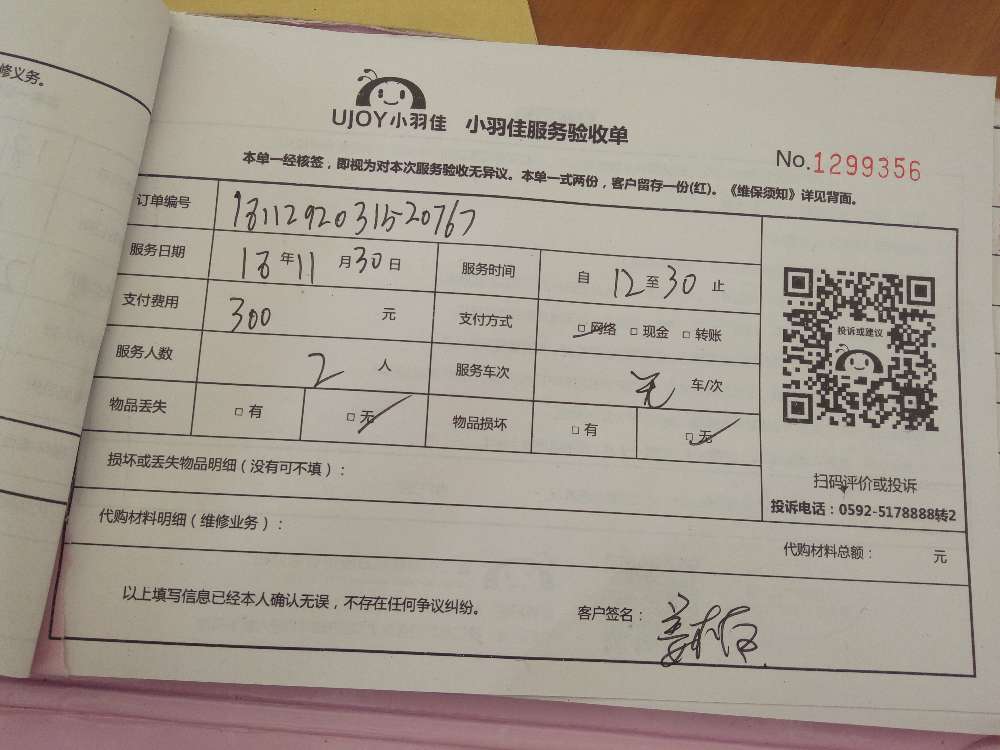 修义务。
UJOY小羽佳 小羽佳服务验收单
No.1299356
本单一经核签，即视为对本次服务验收无异议。本单一式两份，客户留存一份(红)。《维保须知》详见背面。
订单编号 1811292031520767
服务日期 18年11月30日 服务时间 自12至30止
支付费用 300 元 支付方式 □网络 □现金 □转账
投诉或建议
服务人数 2 人 服务车次 无 车/次
物品丢失 □有 □无 物品损坏 □有 □无
损坏或丢失物品明细（没有可不填）：
扫码评价或投诉
投诉电话：0592-5178888转2
代购材料明细（维修业务）：
代购材料总额： 元
以上填写信息已经本人确认无误，不存在任何争议纠纷。 客户签名：